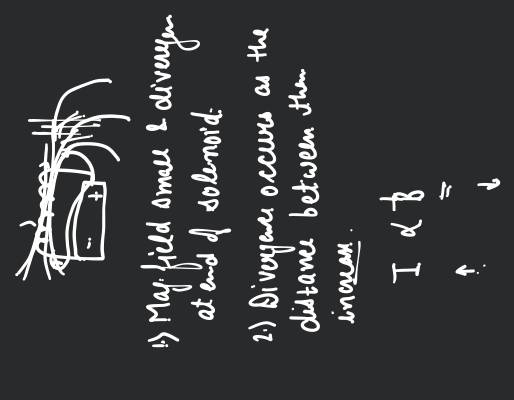 +
-
1.) Mag. field small & diverges
at end of solenoid.
2.) Divergence occurs as the
distance between them
increase.
I α B
↑ = ↓